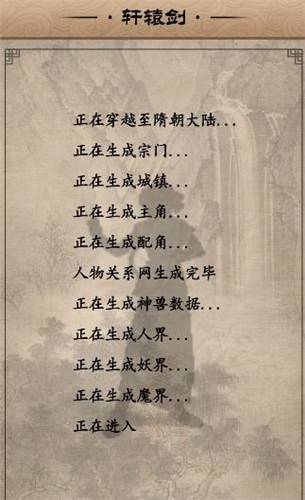 轩辕剑
正在穿越至隋朝大陆...
正在生成宗门...
正在生成城镇...
正在生成主角...
正在生成配角...
人物关系网生成完毕
正在生成神兽数据...
正在生成人界...
正在生成妖界...
正在生成魔界...
正在进入